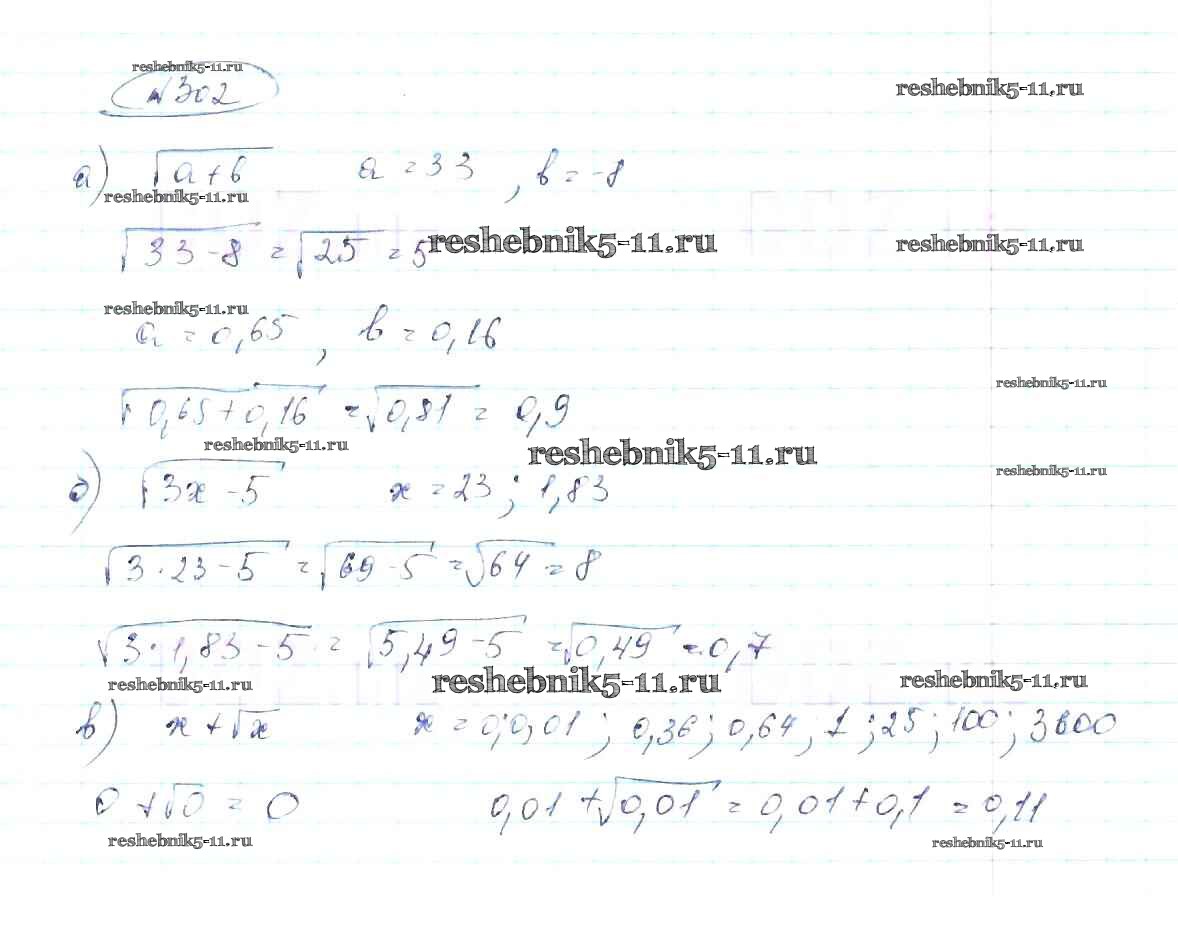 reshebnik5-11.ru
№302
reshebnik5-11.ru
а) √(a+b) a=33, b=-8
reshebnik5-11.ru
√(33-8) = √25 = 5
reshebnik5-11.ru
reshebnik5-11.ru
reshebnik5-11.ru
a=0,65, b=0,16
reshebnik5-11.ru
√(0,65+0,16) = √0,81 = 0,9
reshebnik5-11.ru
reshebnik5-11.ru
reshebnik5-11.ru
б) √(3x-5) x=23; 1,83
√(3·23-5) = √(69-5) = √64 = 8
√(3·1,83-5) = √(5,49-5) = √0,49 = 0,7
reshebnik5-11.ru
reshebnik5-11.ru
reshebnik5-11.ru
в) x+√x x=0; 0,01; 0,36; 0,64; 1; 25; 100; 3600
0+√0 = 0 0,01+√0,01 = 0,01+0,1 = 0,11
reshebnik5-11.ru
reshebnik5-11.ru